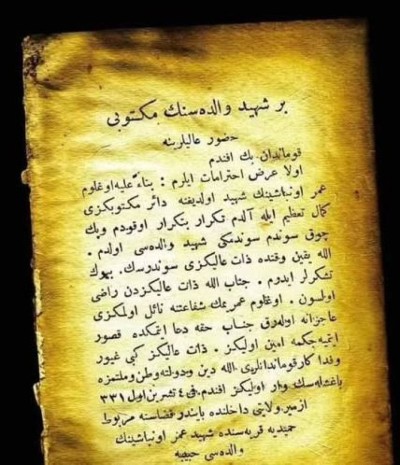 بر شهید والده‌سنك مكتوبی
حضور عالیلرینه
قوماندان بك افندم
اولا عرض احترامات ایلرم : بناءً علیه اوغلوم
عمر اونباشینك شهید اولدیغنه دائر مكتوبكزی
كمال تعظیم ایله آلدم تكرار بتكرار اوقودم وبك
چوق سوندم سوندمكی شهید والده‌سی اولدم .
الله یقین وقتده ذات عالیكزی سوندرسك. بیوك
تشكرلر ایدرم . جناب الله ذات عالیكزدن راضی
اولسون . اوغلوم عمربمك شفاعتنه نائل اولمكزی
عاجزانه اوله‌رق جناب حقه دعا ایتمكده قصور
ایتمیه‌جكمه امین اولیكز . ذات عالیكز كبی غیور
وفدا كار قوماندانلری الله دین ودولته وطن وملتمزه
باغشله‌سك وار اولیكز افندم. فی ٤ تشرین اول ٣٣١
ازمیر ولایتی داخلنده بایندر قضاسنه مربوط
حمیدیه قریه‌سنده شهید عمر اونباشینك
والده‌سی حبیبه